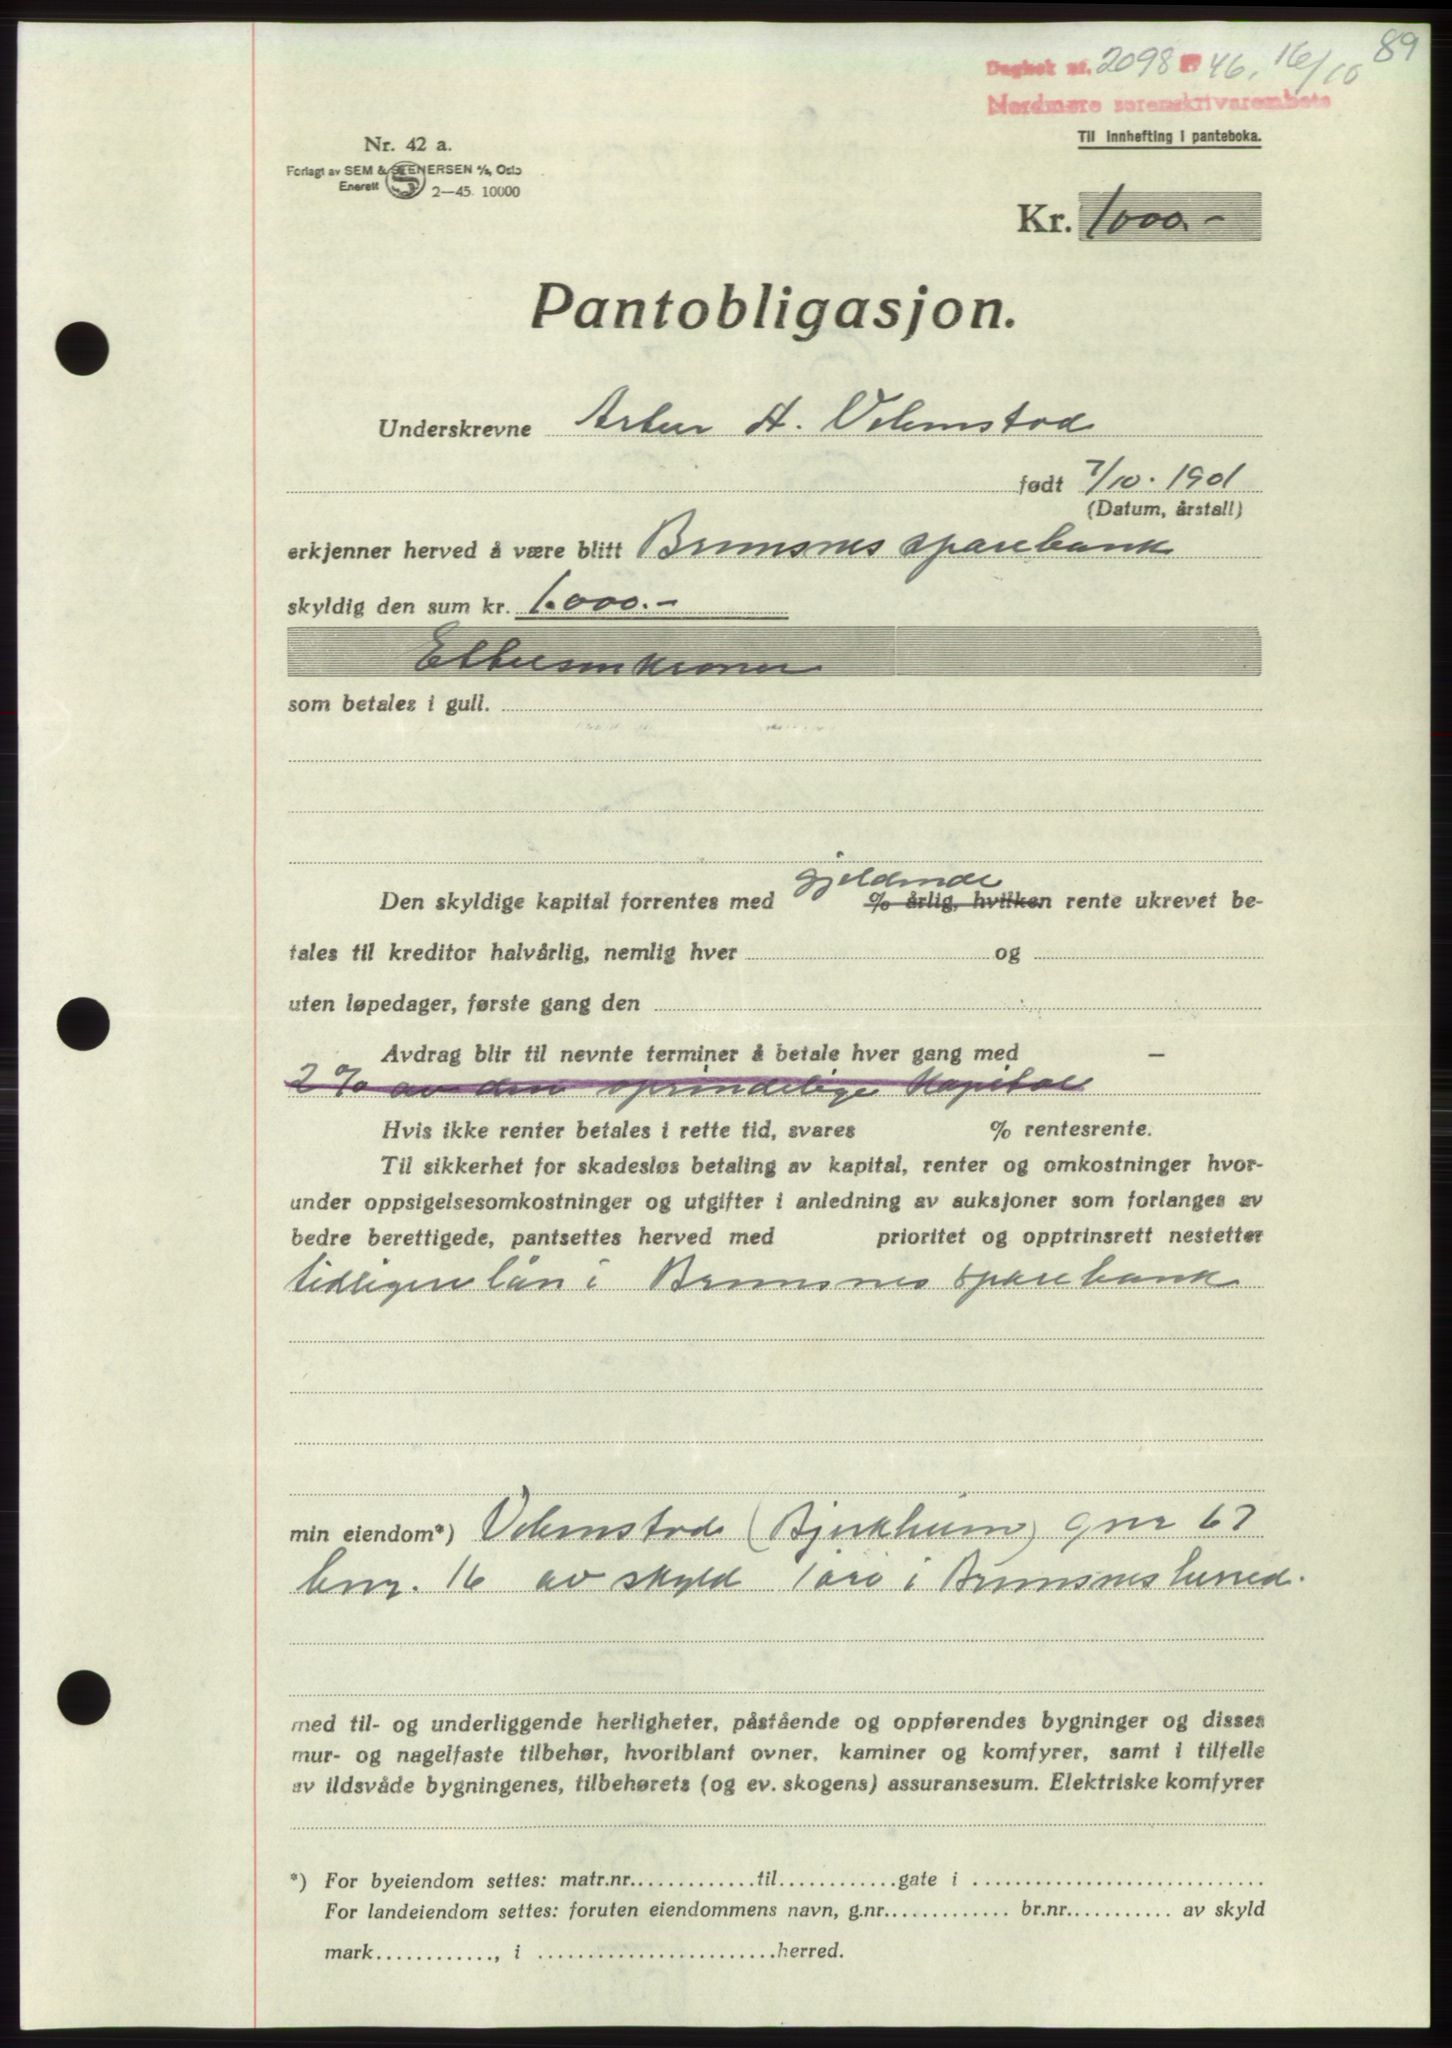 89
Dagbok nr. 2098 46, 16/10
Nordmøre sorenskrivarembete
Til innhefting i panteboka.
Nr. 42 a.
Forlagt av SEM & STENERSEN A/S, Oslo
Enerett 2—45. 10000
Kr. 1000.-
Pantobligasjon.
Underskrevne Artur A. Vebenstad
født 7/10. 1901
(Datum, årstall)
erkjenner herved å være blitt Bremsnes sparebank
skyldig den sum kr. 1.000.-
Ettusenkroner
som betales i gull.
gjeldende
Den skyldige kapital forrentes med % årlig, hvilken rente ukrevet be-
tales til kreditor halvårlig, nemlig hver og
uten løpedager, første gang den
Avdrag blir til nevnte terminer å betale hver gang med –
2% av den oprindelige kapital
Hvis ikke renter betales i rette tid, svares % rentesrente.
Til sikkerhet for skadesløs betaling av kapital, renter og omkostninger hvor-
under oppsigelsesomkostninger og utgifter i anledning av auksjoner som forlanges av
bedre berettigede, pantsettes herved med prioritet og opptrinsrett nestetter
tidligere lån i Bremsnes sparebank
min eiendom*) (Bjerkheim) gnr 67
bnr. 16 av skyld 1 øre i Bremsnes herred.
med til- og underliggende herligheter, påstående og oppførendes bygninger og disses
mur- og nagelfaste tilbehør, hvoriblant ovner, kaminer og komfyrer, samt i tilfelle
av ildsvåde bygningenes, tilbehørets (og ev. skogens) assuransesum. Elektriske komfyrer
*) For byeiendom settes: matr.nr.............til.............gate i .............................
For landeiendom settes: foruten eiendommens navn, g.nr............. br.nr........... av skyld
mark............., i ........................herred.